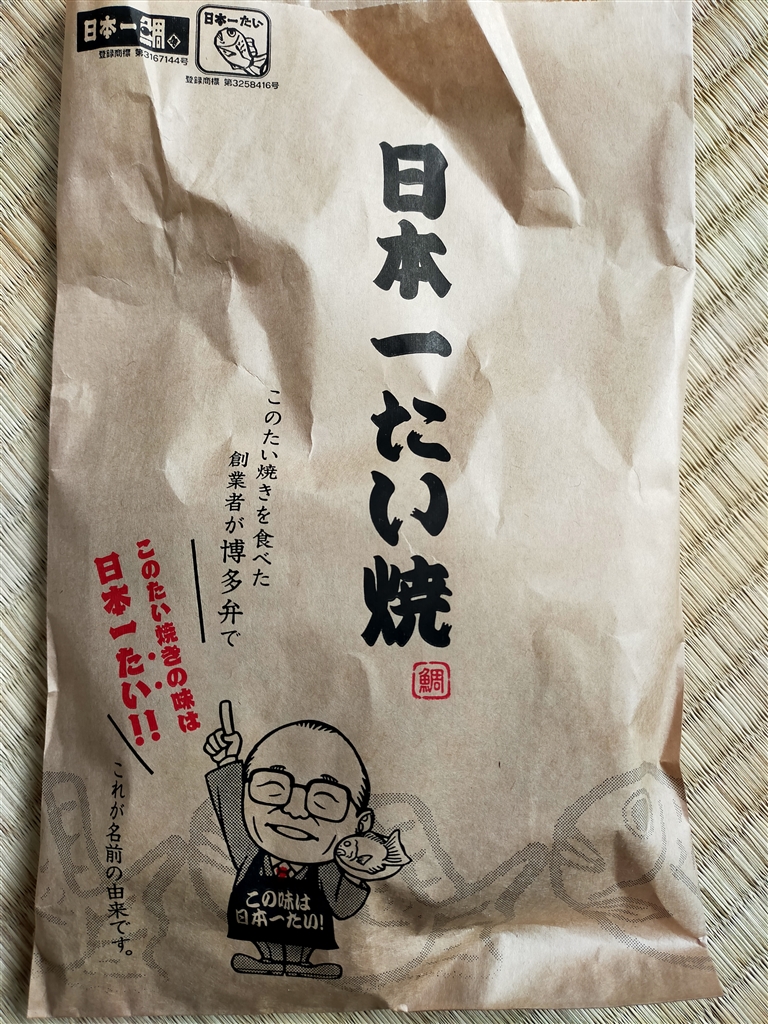 日本一鯛
登録商標 第3167144号
日本一たい
登録商標 第3258416号
日本一たい焼
鯛
このたい焼きを食べた
創業者が博多弁で
このたい焼きの味は
日本一たい!!
これが名前の由来です。
この味は
日本一たい!